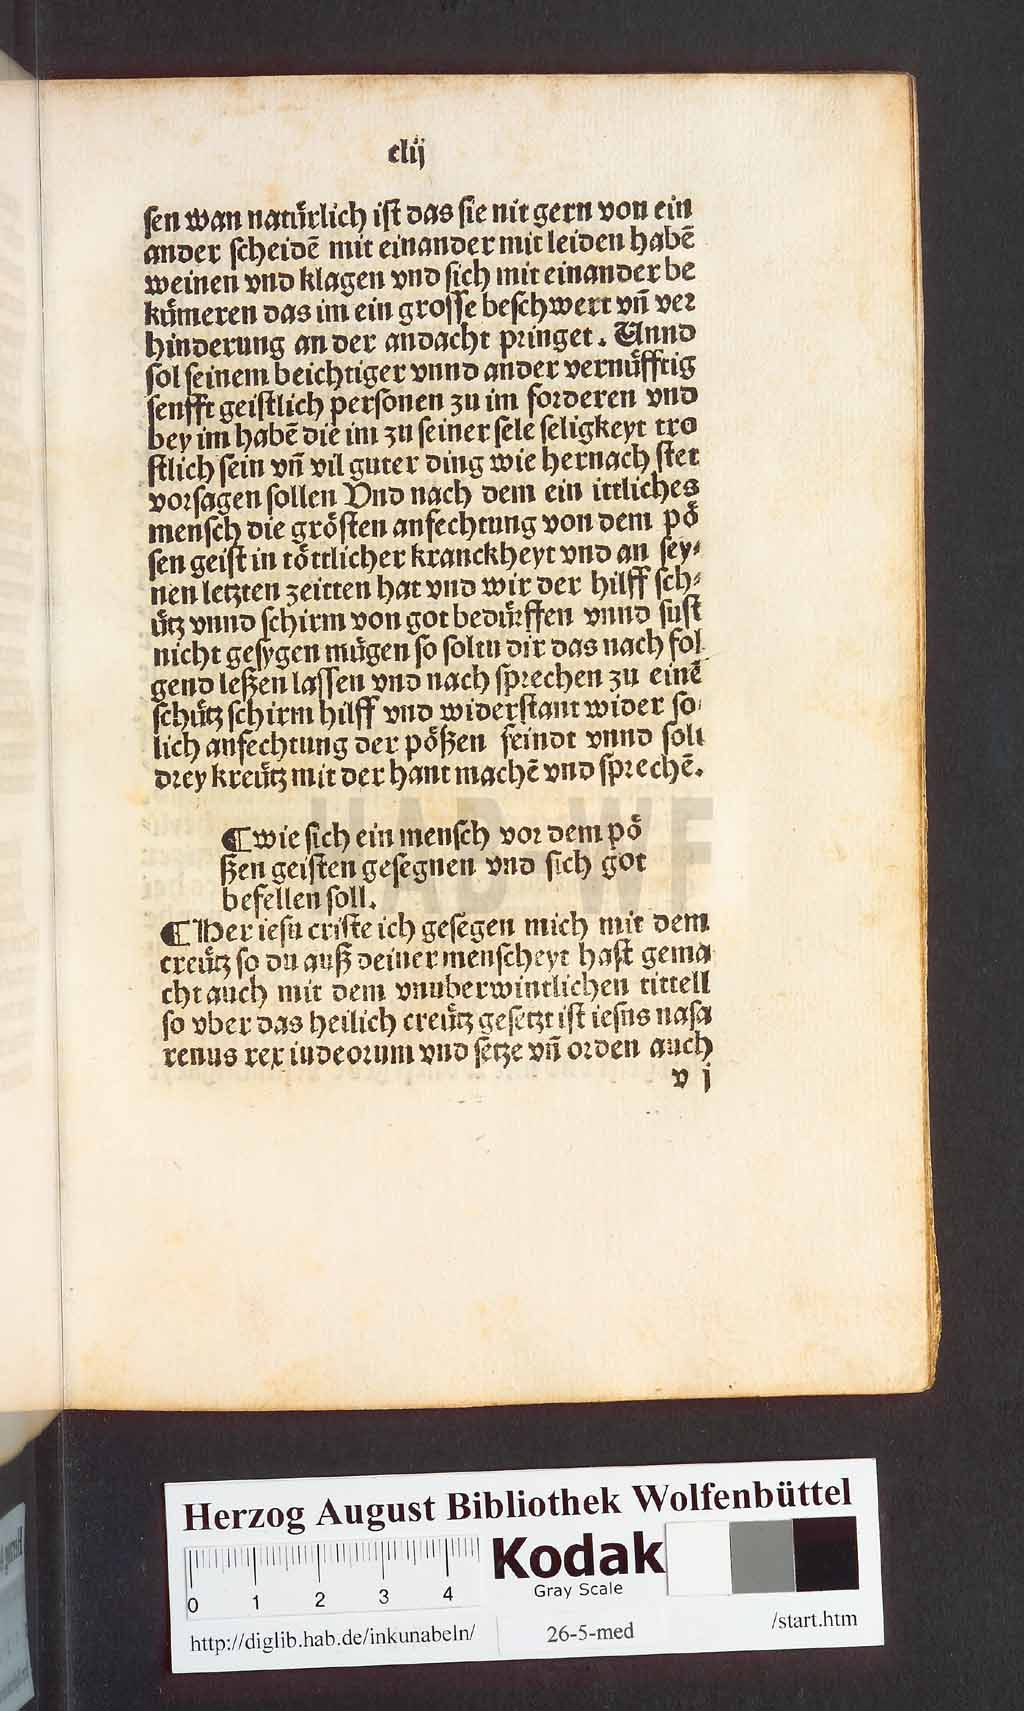 clij
sen wan natuͤrlich ist das sie nit gern von ein
ander scheidē mit einander mit leiden habē
weinen vnd klagen vnd sich mit einander be
kuͤmeren das im ein grosse beschwert vn̄ ver
hinderung an der andacht pringet. Unnd
sol seinem beichtiger vnnd ander vernuͤfftig
senfft geistlich personen zu im forderen vnd
bey im habē die im zu seiner sele seligkeyt tro
stlich sein vn̄ vil guter ding wie hernach stet
vorsagen sollen Vnd nach dem ein ittliches
mensch die groͤsten anfechtung von dem poͤ
sen geist in toͤttlicher kranckheyt vnd an sey⸗
nen letzten zeitten hat vnd wir der hilff sch⸗
uͤtz vnnd schirm von got beduͤrffen vnnd sust
nicht gesygen muͤgen so soltu dir das nach fol
gend leßen lassen vnd nach sprechen zu einē
schuͤtz schirm hilff vnd widerstant wider so⸗
lich anfechtung der poͤßen feindt vnnd solt
drey kreuͤtz mit der hant machē vnd sprechē.
¶ wie sich ein mensch vor dem poͤ
ßen geisten gesegnen vnd sich got
befellen soll.
¶ Her iesu criste ich gesegen mich mit dem
creuͤtz so du auß deiner menscheyt hast gema
cht auch mit dem vnuberwintlichen tittell
so vber das heilich creuͤtz gesetzt ist iesus nasa
renus rex iudeorum vnd setze vn̄ orden auch
v j
HAB-WF
Herzog August Bibliothek Wolfenbüttel
0 1 2 3 4
Kodak
Gray Scale
http://diglib.hab.de/inkunabeln/ 26-5-med /start.htm